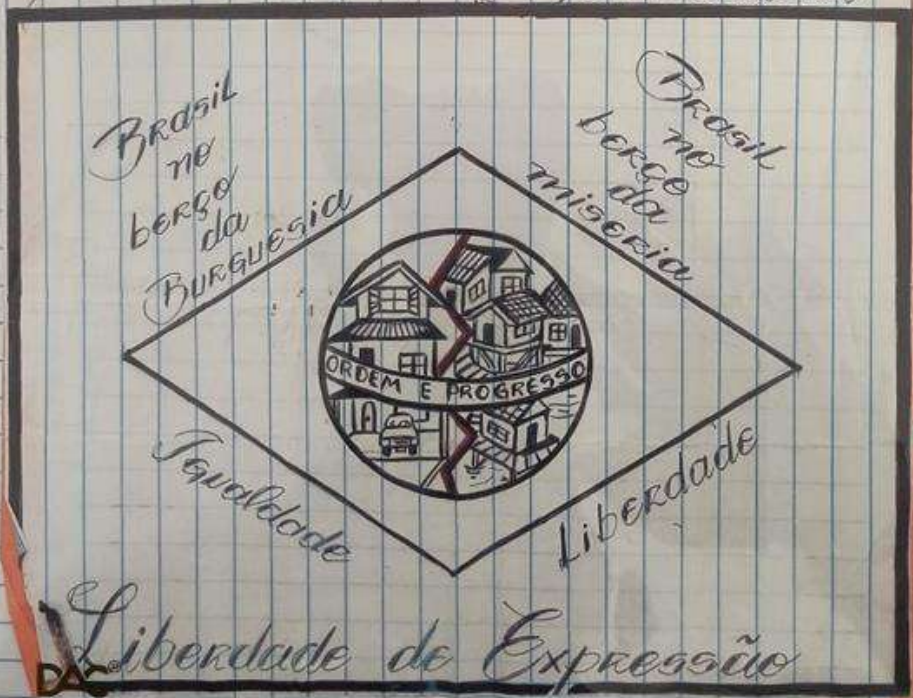 Brasil
no
berço
da
Burguesia
Brasil
no
berço
da
miseria
ORDEM E PROGRESSO
Igualdade
Liberdade
Liberdade de Expressão
DAC